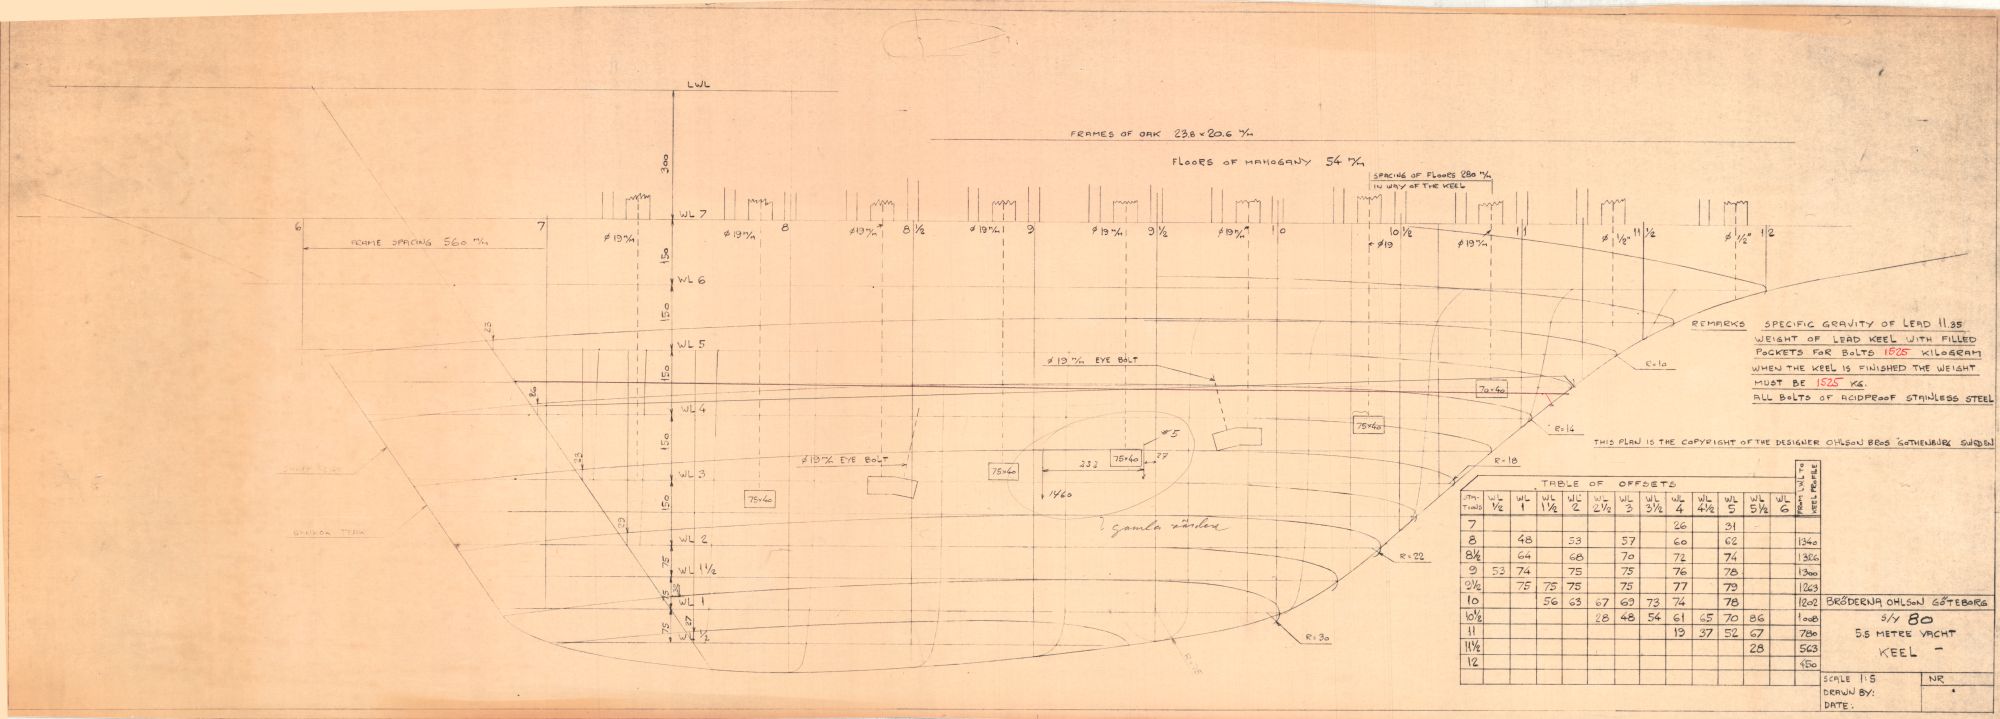 LWL
FRAMES OF OAK 23.8 × 20.6 m/m
FLOORS OF MAHOGANY 54 m/m
SPACING OF FLOORS 280 m/m
IN WAY OF THE KEEL
300
WL 7
6
7
8
8 ½
9
9 ½
10
10 ½
11
11 ½
12
FRAME SPACING 560 m/m
ø 19 m/m
ø 19 m/m
ø 19 m/m
ø 19 m/m
ø 19 m/m
ø 19 m/m
ø 19
ø 19 m/m
ø ½"
ø ½"
150
WL 6
150
WL 5
150
WL 4
150
WL 3
150
WL 2
75
WL 1½
75
WL 1
75
WL ½
23
26
23
29
27
ø 19 m/m EYE BOLT
ø 19 m/m EYE BOLT
70×40
75×40
75×40
75×40
75×40
333
27
1460
gamla
R=10
R=14
R=18
R=22
R=30
REMARKS SPECIFIC GRAVITY OF LEAD 11.35
WEIGHT OF LEAD KEEL WITH FILLED
POCKETS FOR BOLTS 1525 KILOGRAM
WHEN THE KEEL IS FINISHED THE WEIGHT
MUST BE 1525 KG.
ALL BOLTS OF ACIDPROOF STAINLESS STEEL
THIS PLAN IS THE COPYRIGHT OF THE DESIGNER OHLSON BROS GOTHENBURG SWEDEN
TABLE OF OFFSETS
STATIONS WL ½ WL 1 WL 1½ WL 2 WL 2½ WL 3 WL 3½ WL 4 WL 4½ WL 5 WL 5½ WL 6 FROM LWL TO KEEL PROFILE
7 26 31
8 48 53 57 60 62 1340
8½ 64 68 70 72 74 1326
9 53 74 75 75 76 78 1300
9½ 75 75 75 75 77 79 1263
10 56 63 67 69 73 74 78 1202
10½ 28 48 54 61 65 70 86 1008
11 19 37 52 67 780
11½ 28 563
12 450
BRÖDERNA OHLSON GÖTEBORG
S/Y 80
5.5 METRE YACHT
KEEL
SCALE 1:5
NR
DRAWN BY:
DATE: